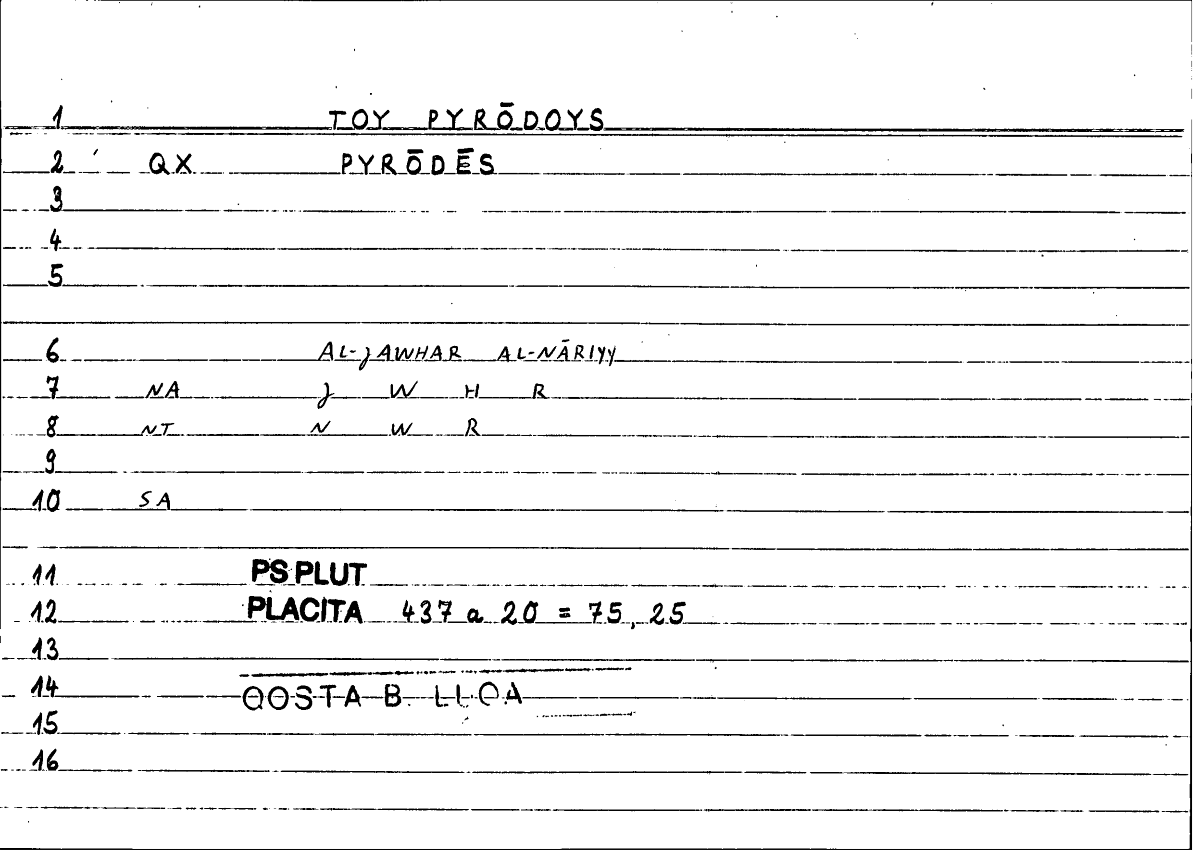 1 TOY PYRŌDOYS
2 QX PYRŌDĒS
3
4
5
6 AL-JAWHAR AL-NĀRIYY
7 NA J W H R
8 NT N W R
9
10 SA
11 PS PLUT
12 PLACITA 437 a 20 = 75, 25
13
14 QOSTA B.
15
16